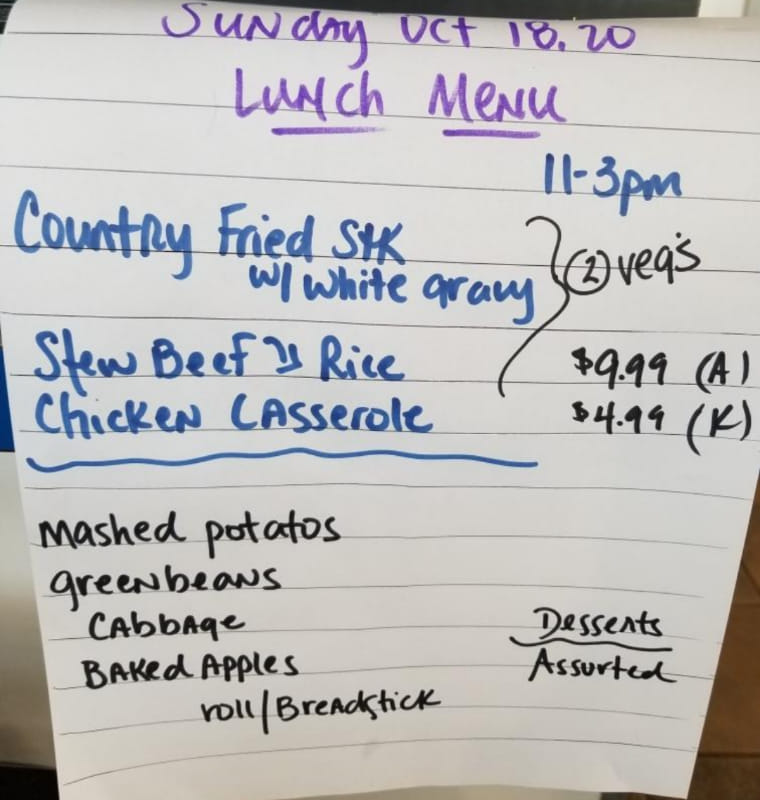 Sunday Oct 18.20
Lunch Menu
11-3pm
Country Fried Stk
w/ white gravy
② veg's
Stew Beef & Rice
$9.99 (A)
Chicken Casserole
$4.99 (K)
Mashed potatos
greenbeans
Cabbage
Baked Apples
roll/Breadstick
Desserts
Assurted